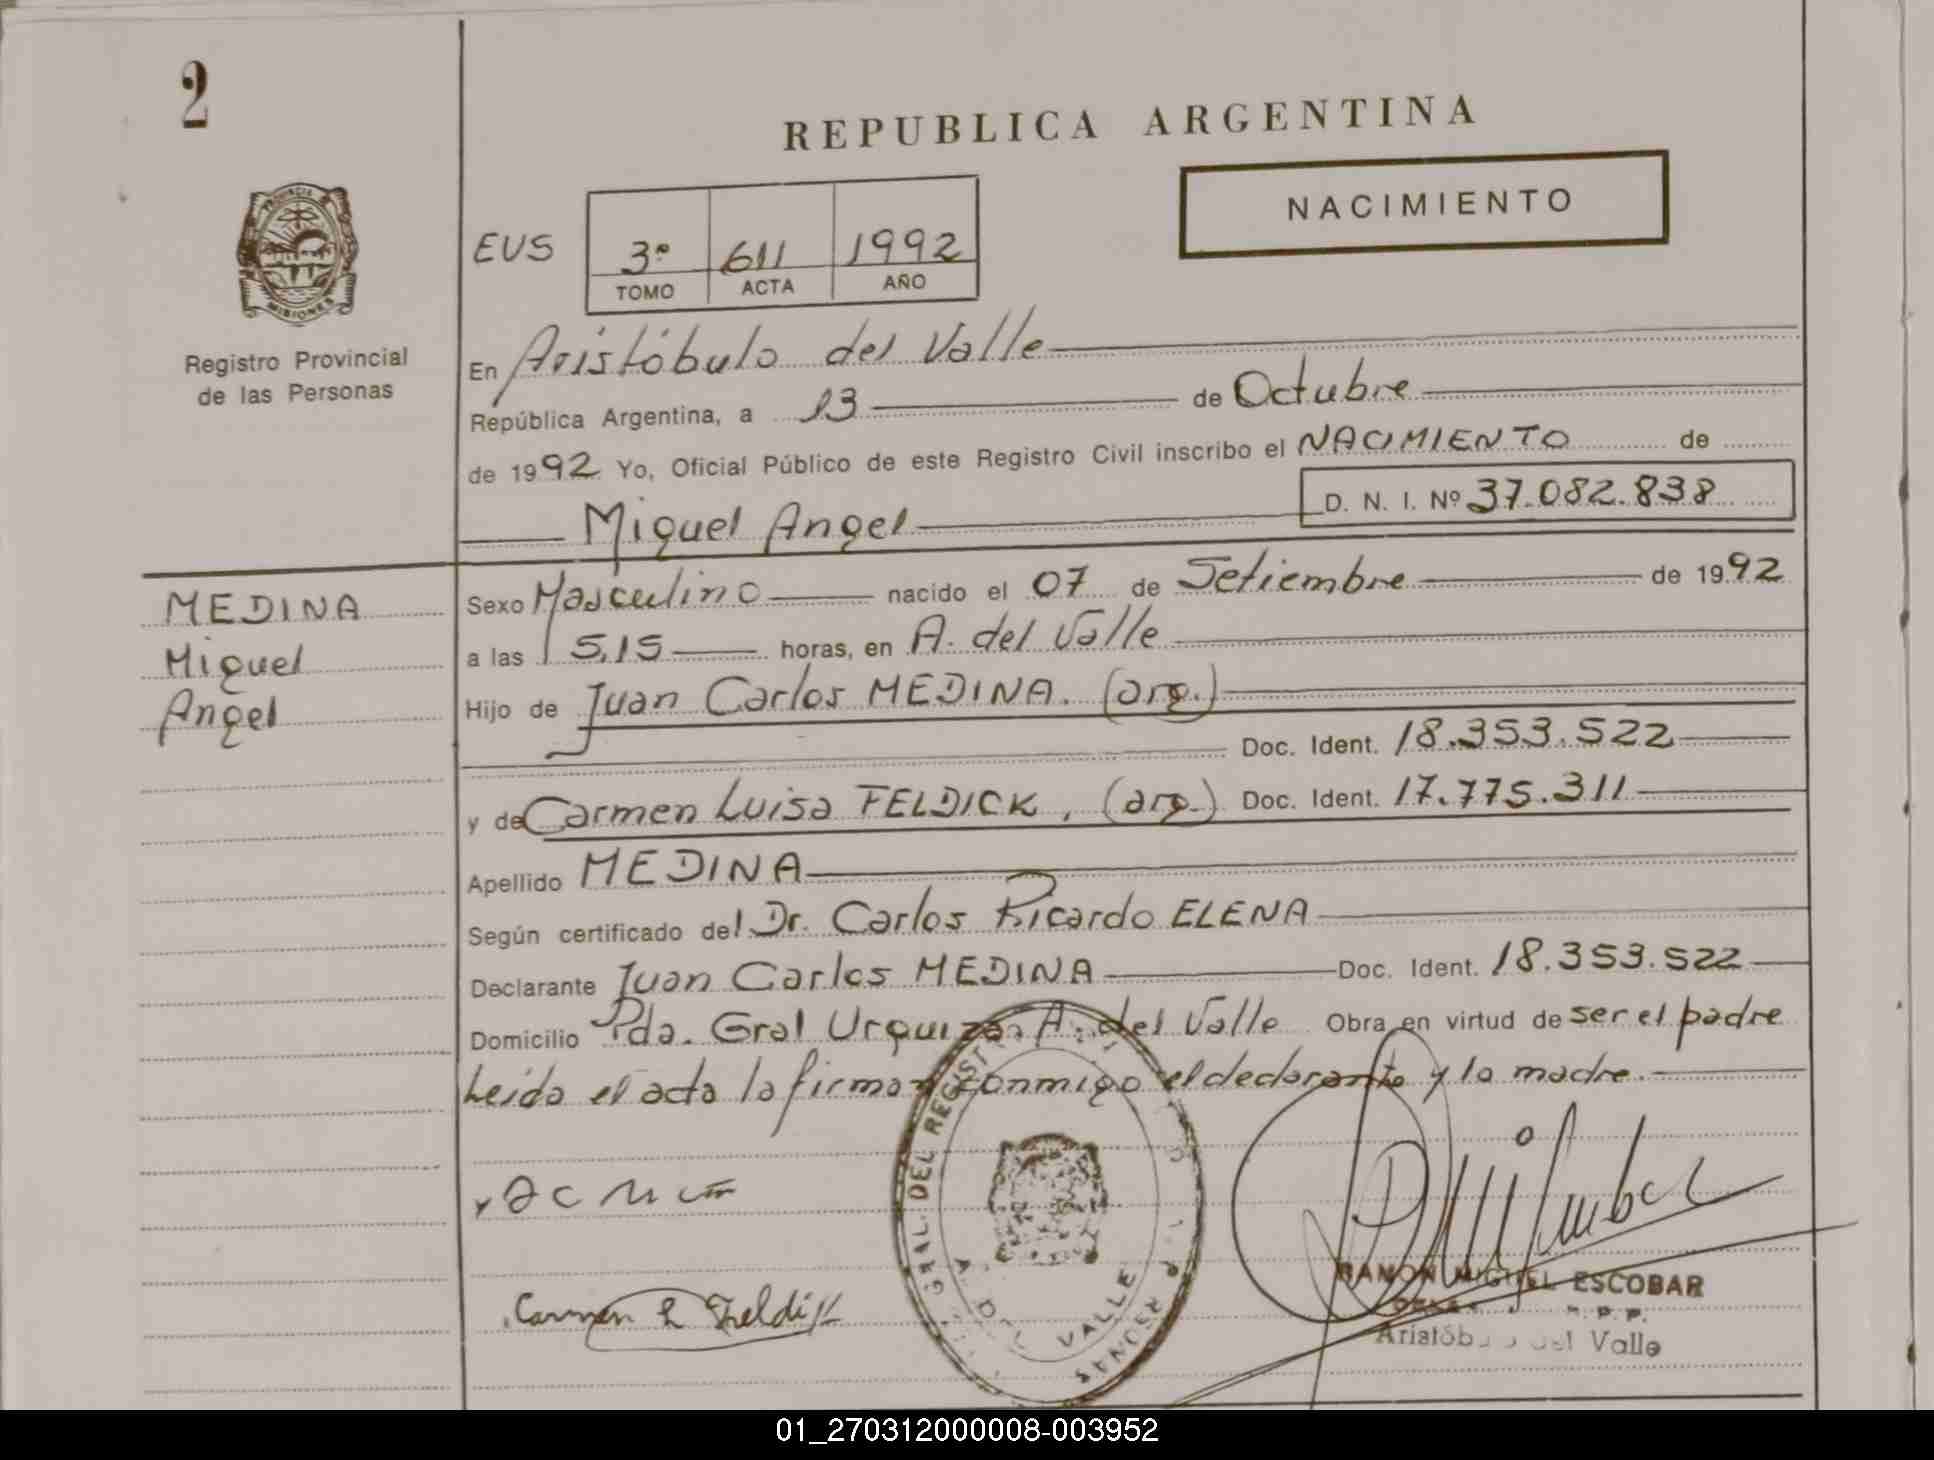 2
REPUBLICA ARGENTINA
NACIMIENTO
PROVINCIA
MISIONES
Registro Provincial
de las Personas
EUS
3º 611 1992
TOMO ACTA AÑO
En Aristóbulo del Valle
República Argentina, a 13 de Octubre
de 1992 Yo, Oficial Público de este Registro Civil inscribo el NACIMIENTO de
D. N. I. Nº 37.082.838
Miguel Angel
MEDINA
Miguel
Angel
Sexo Masculino nacido el 07 de Setiembre de 1992
a las 15,15 horas, en A. del Valle
Hijo de Juan Carlos MEDINA. (arg.)
Doc. Ident. 18.353.522
y de Carmen Luisa FELDICK, (arg.) Doc. Ident. 17.775.311
Apellido MEDINA
Según certificado del Dr. Carlos Ricardo ELENA
Declarante Juan Carlos MEDINA Doc. Ident. 18.353.522
Domicilio Pda. Gral Urquiza. A. del Valle Obra en virtud de ser el padre
Leida el acta la firman conmigo el declarante y la madre.
GRAL. DEL REGIST
VALLE
Carmen L Feldick
RAMON MIGUEL ESCOBAR
Aristób del Valle
01_270312000008-003952